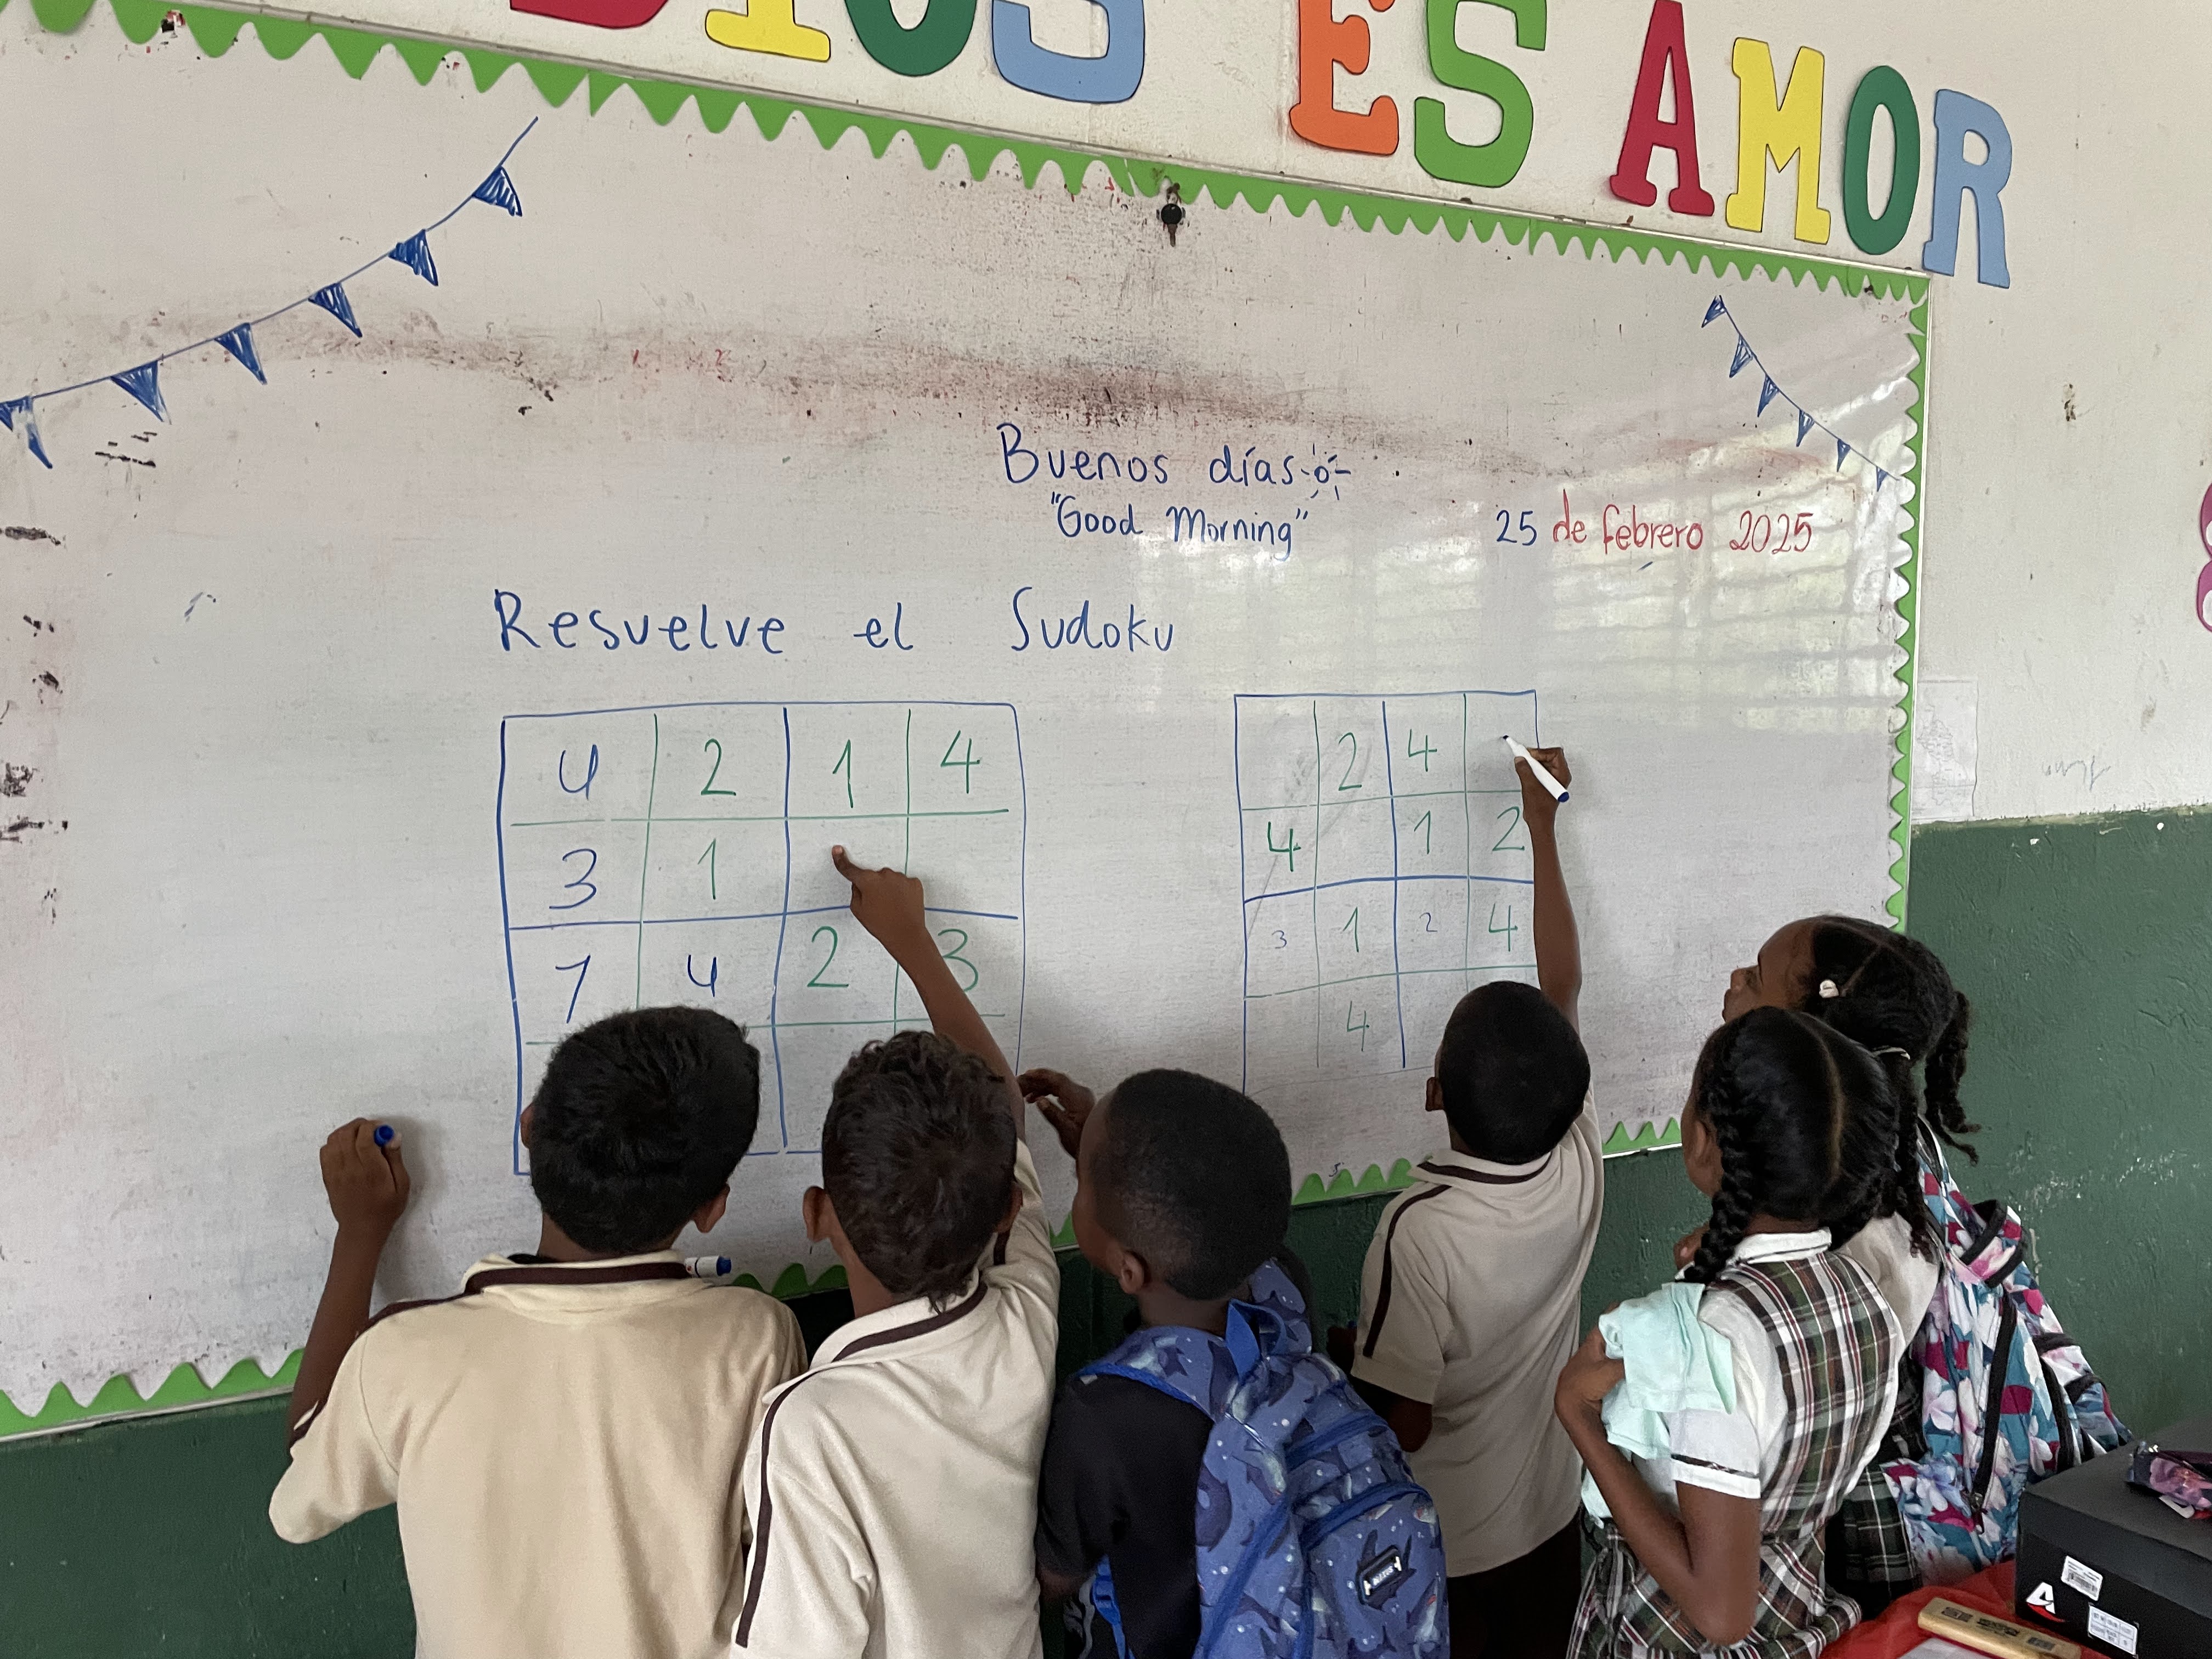 DIOS ES AMOR
Buenos días
"Good Morning"
25 de febrero 2025
Resuelve el Sudoku
4 2 1 4
3 1
1 4 2 3
2 4
4 1 2
3 1 2 4
4